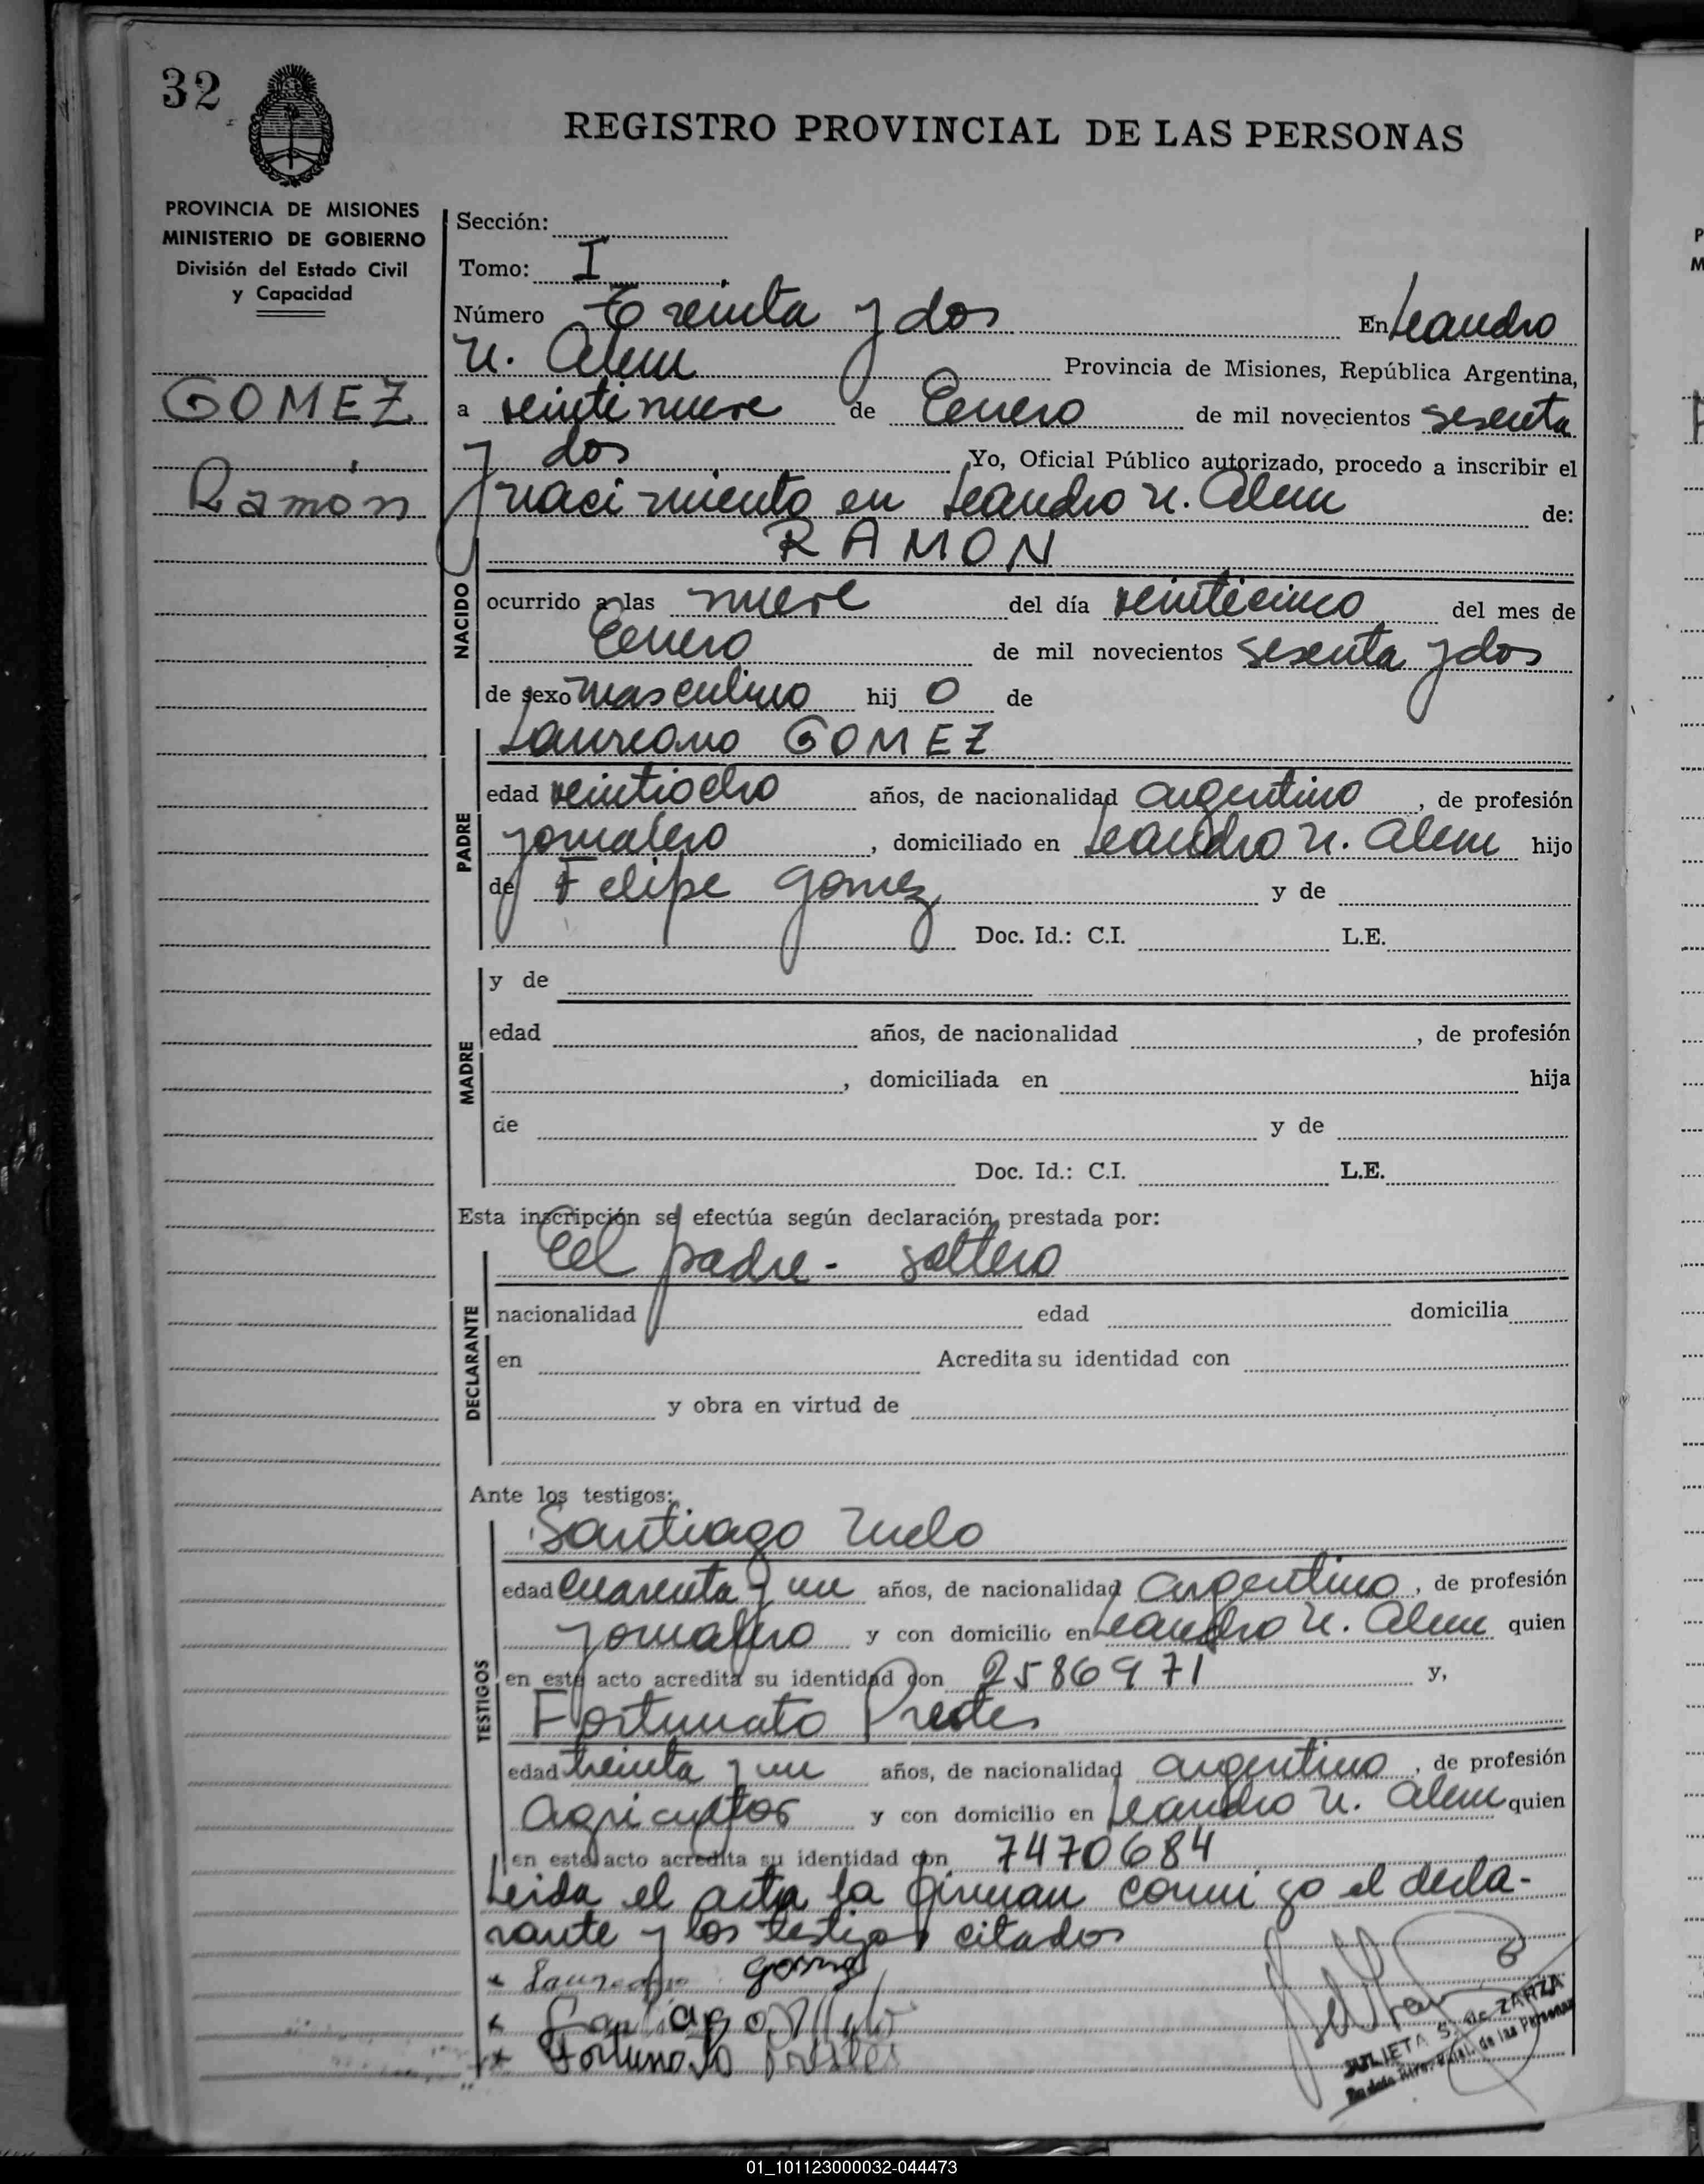 32
REGISTRO PROVINCIAL DE LAS PERSONAS
PROVINCIA DE MISIONES
MINISTERIO DE GOBIERNO
División del Estado Civil
y Capacidad
GOMEZ
Ramón
Sección:
Tomo: I
Número Treinta y dos En Leandro
N. Alem Provincia de Misiones, República Argentina,
a veinti nueve de Enero de mil novecientos sesenta
y dos Yo, Oficial Público autorizado, procedo a inscribir el
nacimiento en Leandro N. Alem de:
RAMON
NACIDO
ocurrido a las nueve del día veinticinco del mes de
Enero de mil novecientos sesenta y dos
de sexo masculino hij o de
Laureano GOMEZ
PADRE
edad veintiocho años, de nacionalidad argentino, de profesión
jornalero, domiciliado en Leandro N. Alem hijo
de Felipe Gomez y de
Doc. Id.: C.I. L.E.
MADRE
y de
edad años, de nacionalidad , de profesión
, domiciliada en hija
de y de
Doc. Id.: C.I. L.E.
Esta inscripción se efectúa según declaración prestada por:
El padre - soltero
DECLARANTE
nacionalidad edad domicilia
en Acredita su identidad con
y obra en virtud de
Ante los testigos:
Santiago
TESTIGOS
edad cuarenta y un años, de nacionalidad argentino, de profesión
jornalero y con domicilio en Leandro N. Alem quien
en este acto acredita su identidad con 2586971 y,
Fortunato Prestes
edad treinta y un años, de nacionalidad argentino, de profesión
Agricultor y con domicilio en Leandro N. Alem quien
en este acto acredita su identidad con 7470684
Leida el acta la firman conmigo el decla-
rante y los testigos citados
Laureano gomez
Santiago
Fortunato
JULIETA S. de ZARZA
de las Personas
01_101123000032-044473